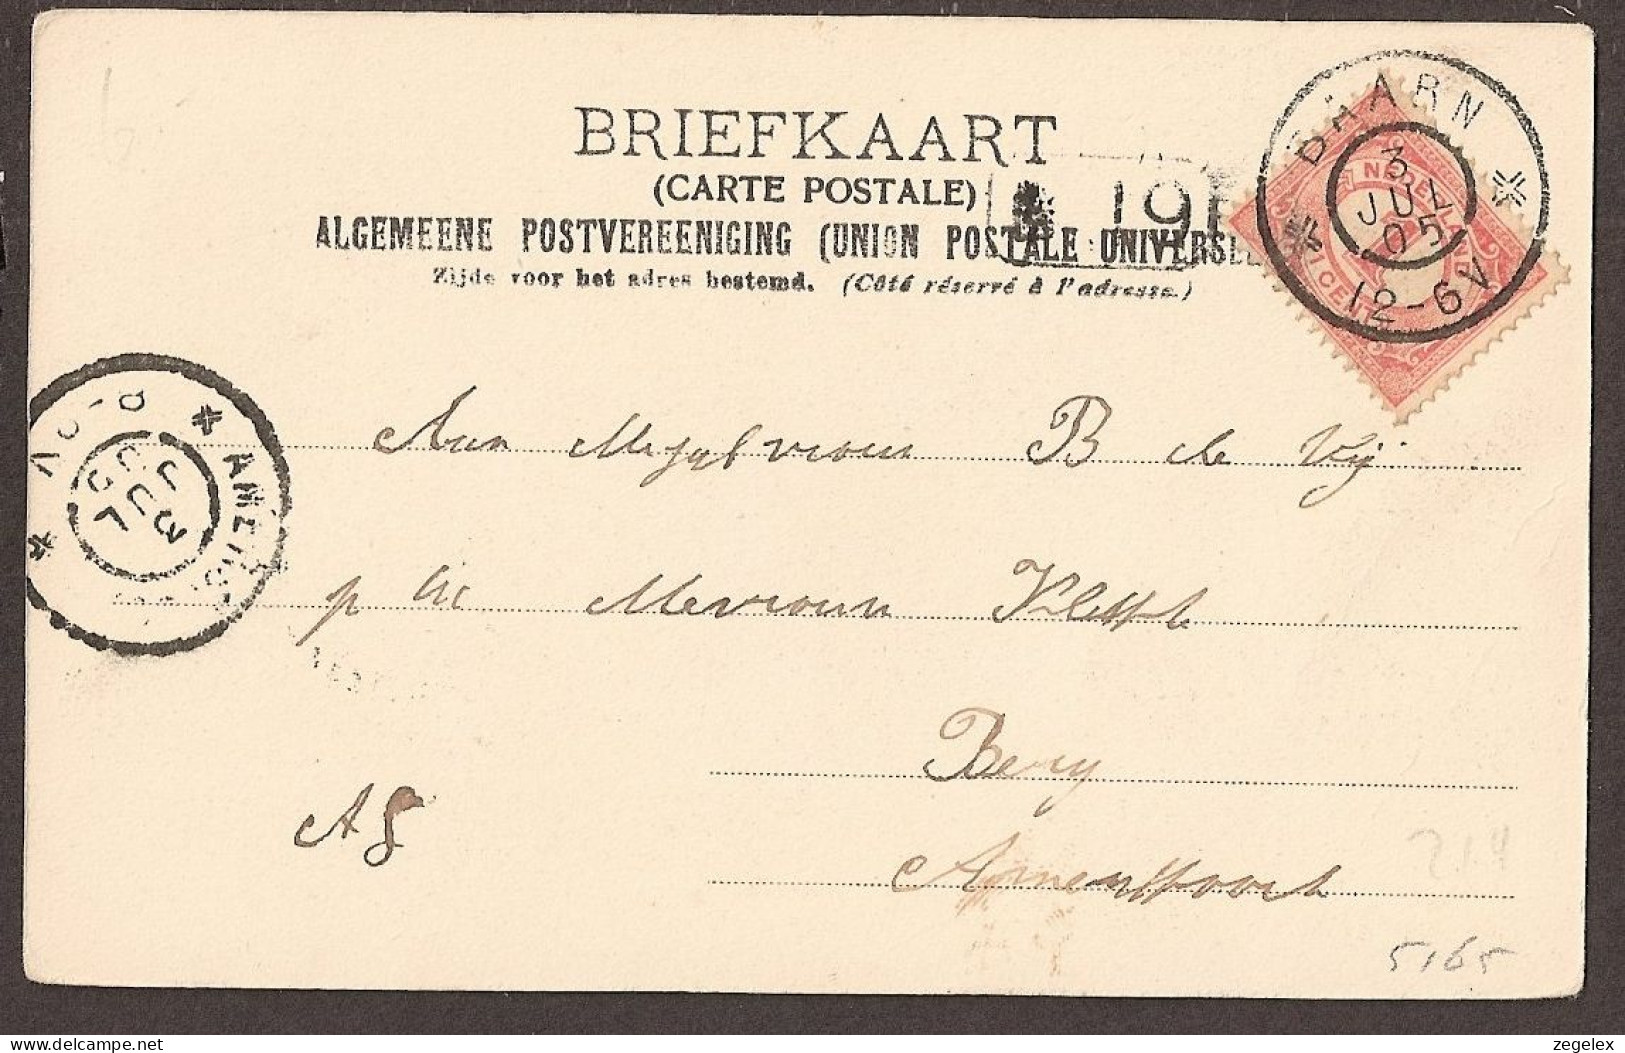 BRIEFKAART
(CARTE POSTALE)
ALGEMEENE POSTVEREENIGING (UNION POSTALE UNIVERSEL
Zijde voor het adres bestemd. (Côté réservé à l'adresse.)
BAARN
3
JUL
05
12-6V
NEDERLAND
CENT
3
JUL
05
Aan Mejufvrouw B de Vij
p/a Mevrouw
Berg
Amersfoort
AG
214
5165
zegelex